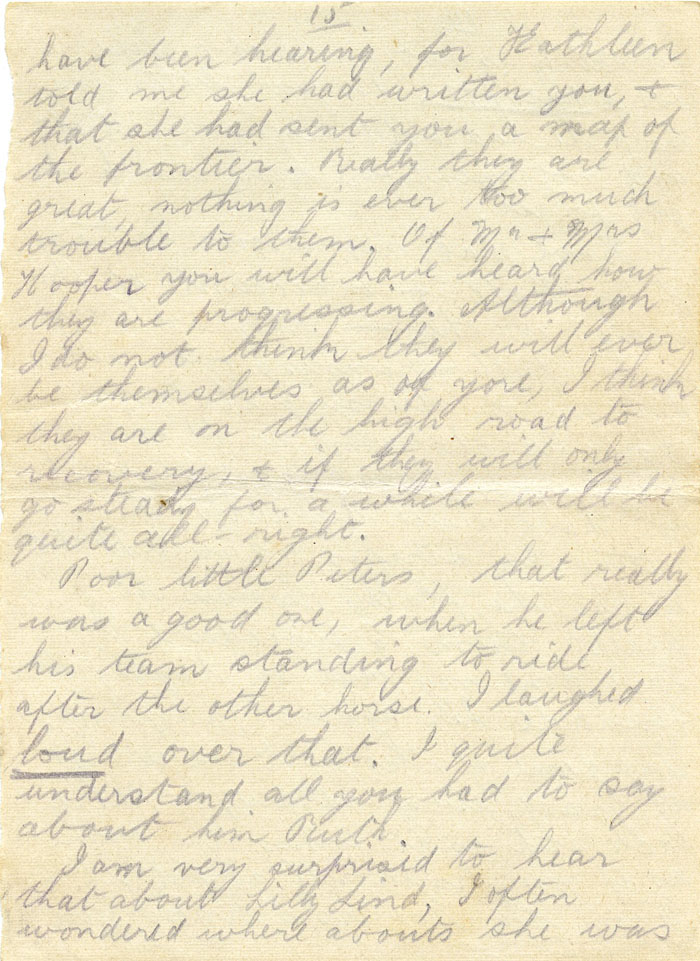 15
have been hearing, for Kathleen
told me she had written you, &
that she had sent you a map of
the frontier. Really they are
great, nothing is ever too much
trouble to them. Of Mr & Mrs
Hooper you will have heard how
they are progressing. Although
I do not think they will ever
be themselves as of yore, I think
they are on the high road to
recovery, & if they will only
go steady for a while will be
quite all-right.
Poor little Peters, that really
was a good one, when he left
his team standing to ride
after the other horse. I laughed
loud over that. I quite
understand all you had to say
about him Ruth.
I am very surprised to hear
that about Lilly Lind, I often
wondered where abouts she was